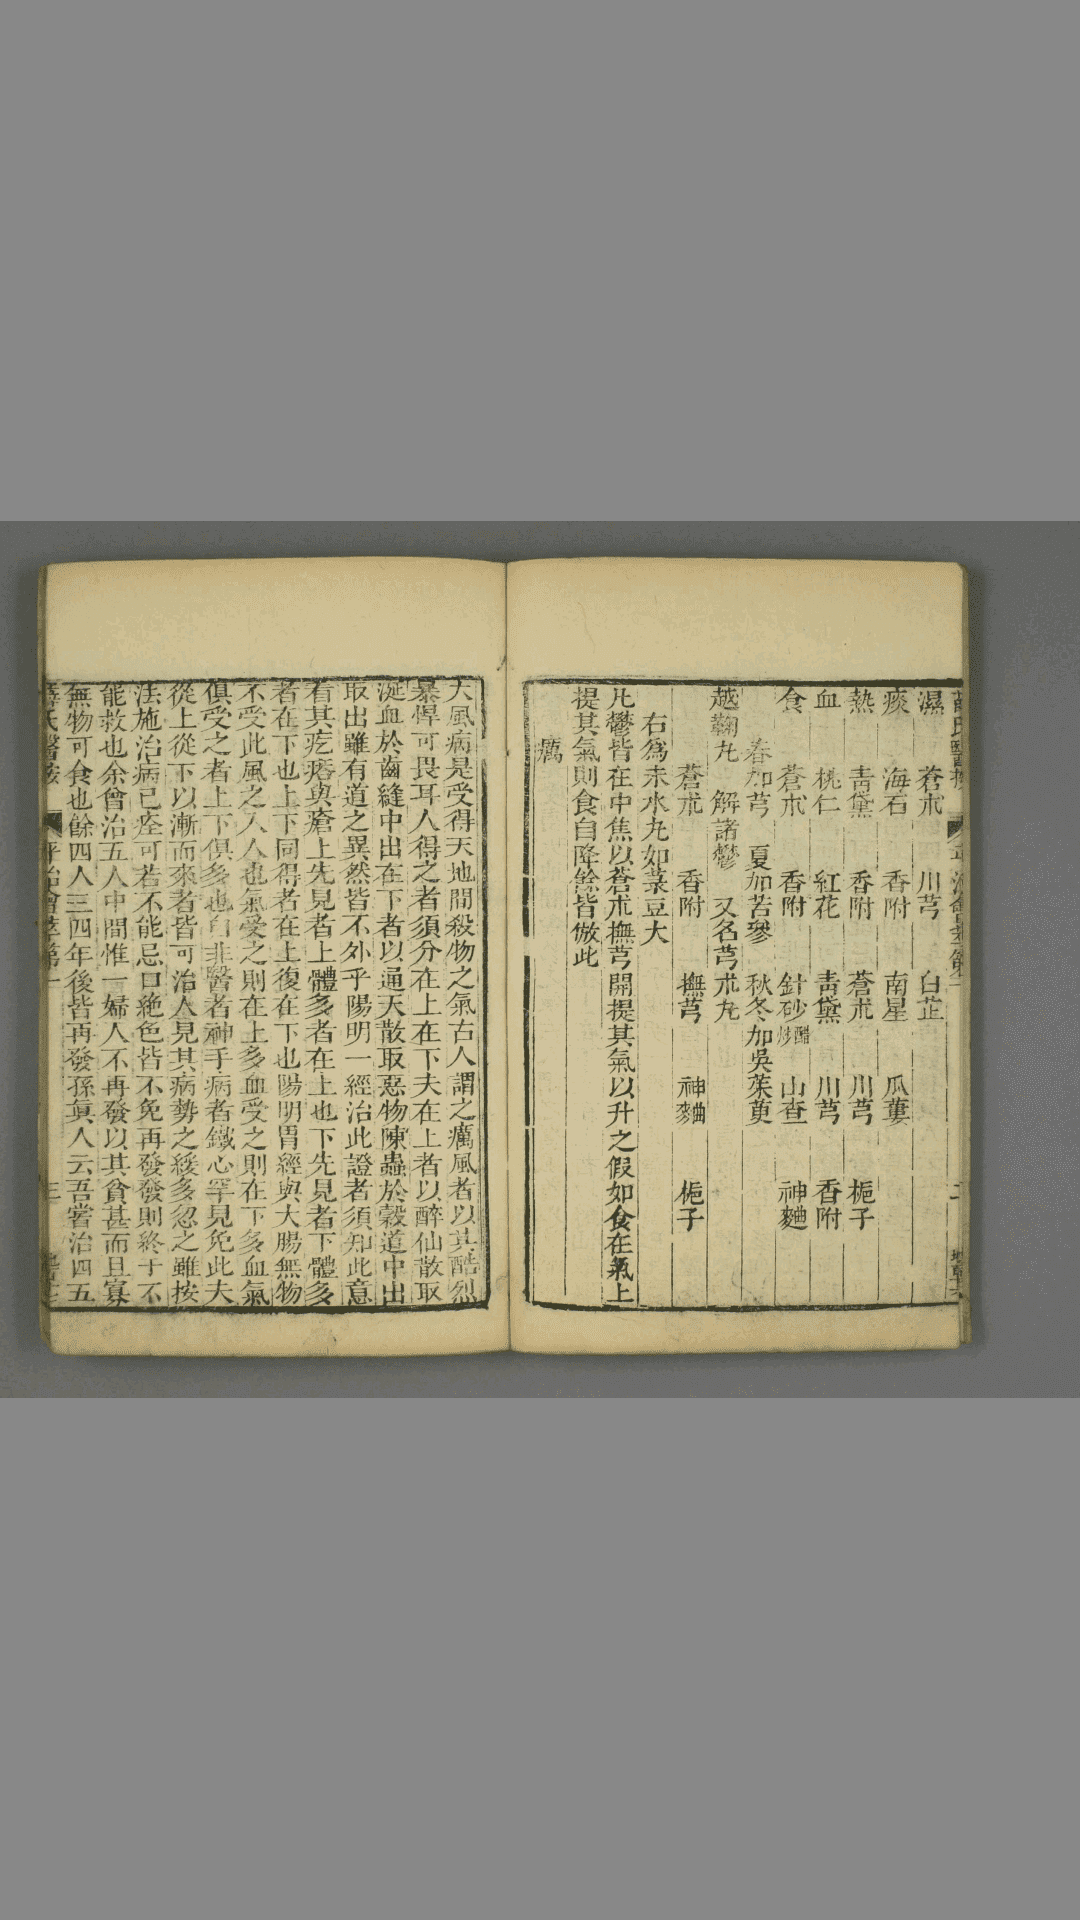 濕 蒼朮 川芎 白芷
痰 海石 香附 南星 瓜蔞
熱 青黛 香附 蒼朮 川芎 梔子
血 桃仁 紅花 青黛 川芎 香附
食 蒼朮 香附 針砂醋炒 山查 神麯
春加芎 夏加苦參 秋冬加吳茱萸
越鞠丸 解諸鬱 又名芎朮丸
蒼朮 香附 撫芎 神麯 梔子
右爲末水丸如菉豆大
凡鬱皆在中焦以蒼朮撫芎開提其氣以升之假如食在氣上
提其氣則食自降餘皆倣此
癘
大風病是受得天地間殺物之氣古人謂之癘風者以其酷烈
暴悍可畏耳人得之者須分在上在下夫在上者以醉仙散取
涎血於齒縫中出在下者以通天散取惡物陳蟲於穀道中出
取出雖有道之異然皆不外乎陽明一經治此證者須知此意
看其疙瘩與瘡上先見者上體多者在上也下先見者下體多
者在下也上下同得者在上復在下也陽明胃經與大腸無物
不受此風之入人也氣受之則在上多血受之則在下多血氣
俱受之者上下俱多也自非醫者神手病者鐵心罕見免此夫
從上從下以漸而來者皆可治人見其病勢之緩多忽之雖按
法施治病已痊可若不能忌口絶色皆不免再發發則終于不
能救也余曾治五人中間惟一婦人不再發以其貧甚而且寡
無物可食也餘四人三四年後皆再發孫眞人云吾嘗治四五
薛氏醫按 平治會萃第一 三